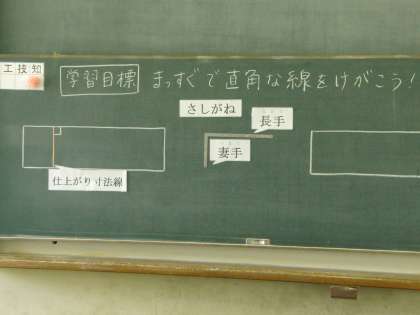 工 技 知
学習目標 まっすぐで直角な線をけがこう!
さしがね
長手
妻手
仕上がり寸法線